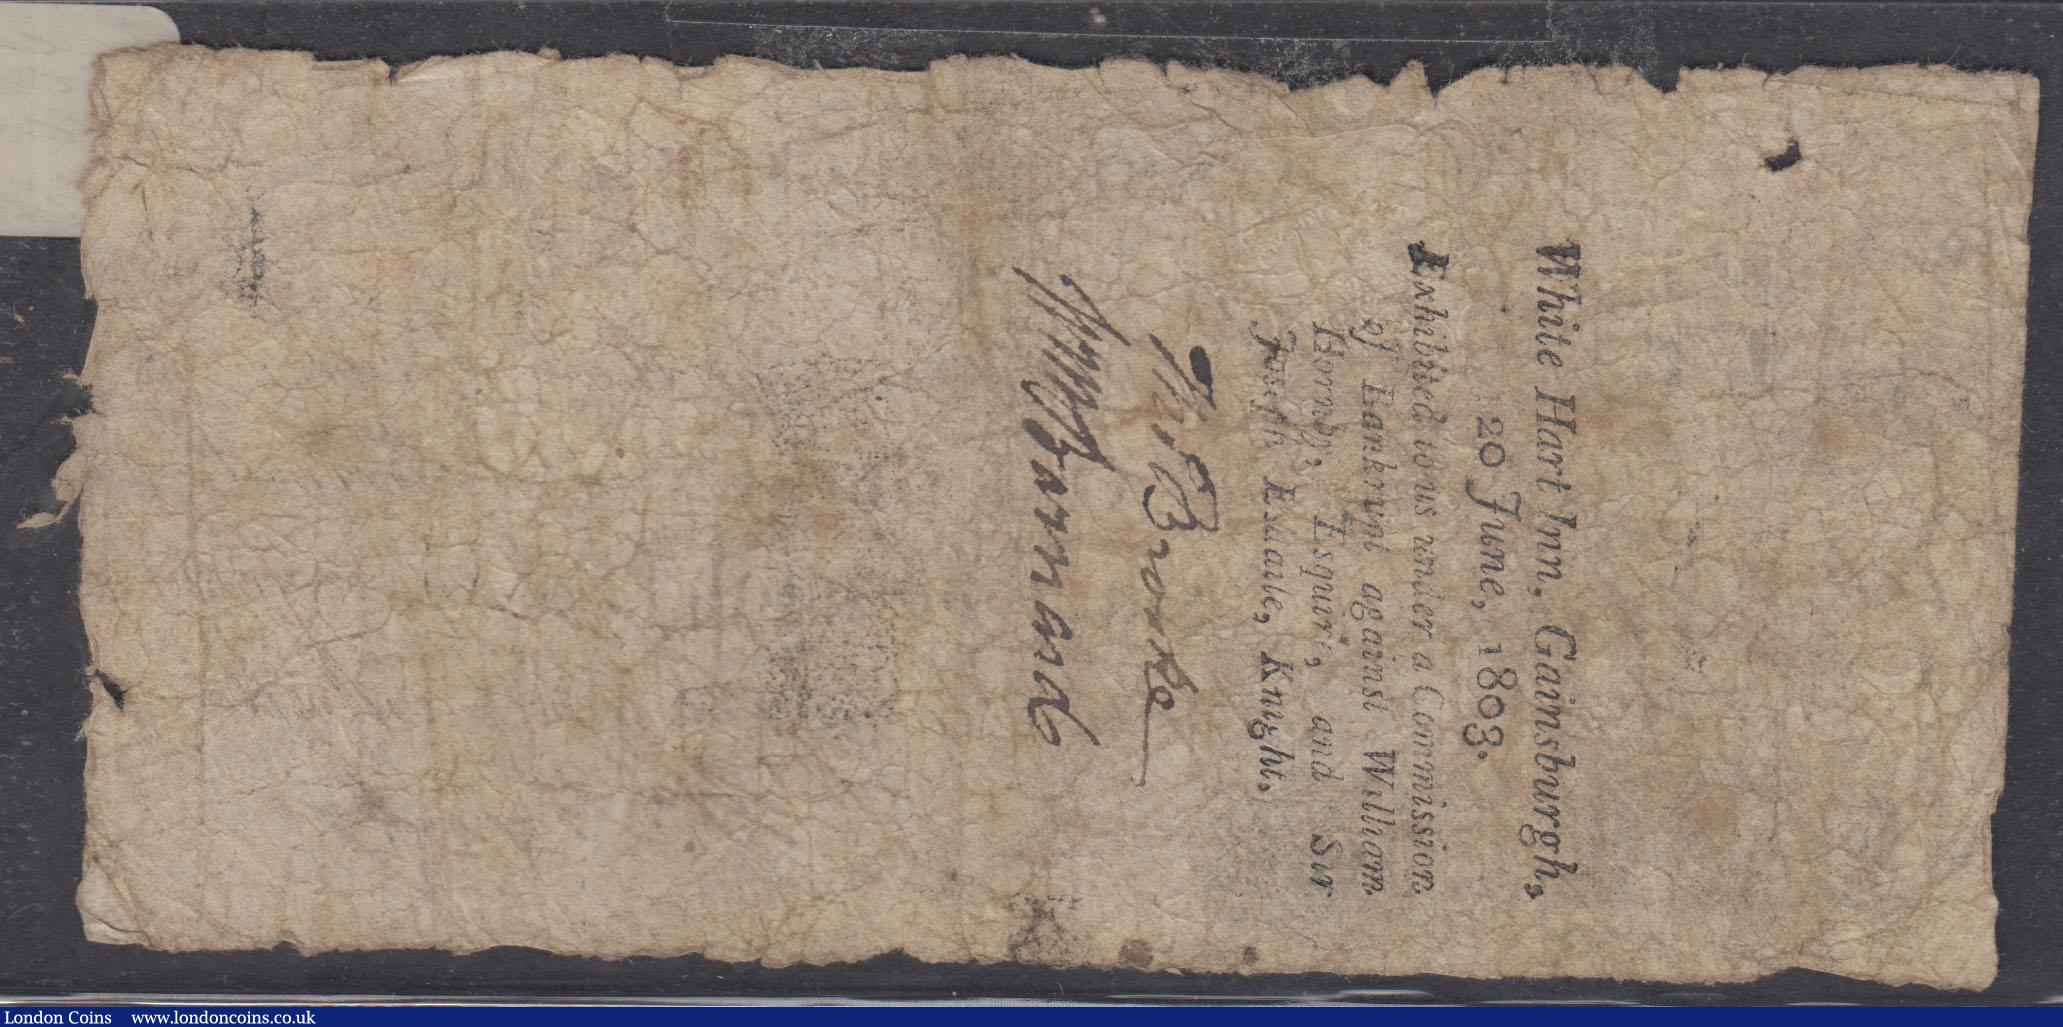 White Hart Inn, Gainsburgh,
20 June, 1803.
Exhibited to us under a Commission
of Bankrupt against William
Hornby, Esquire, and Sir
Joseph Esdaile, Knight.
Thos Brooke
Barnard
London Coins www.londoncoins.co.uk